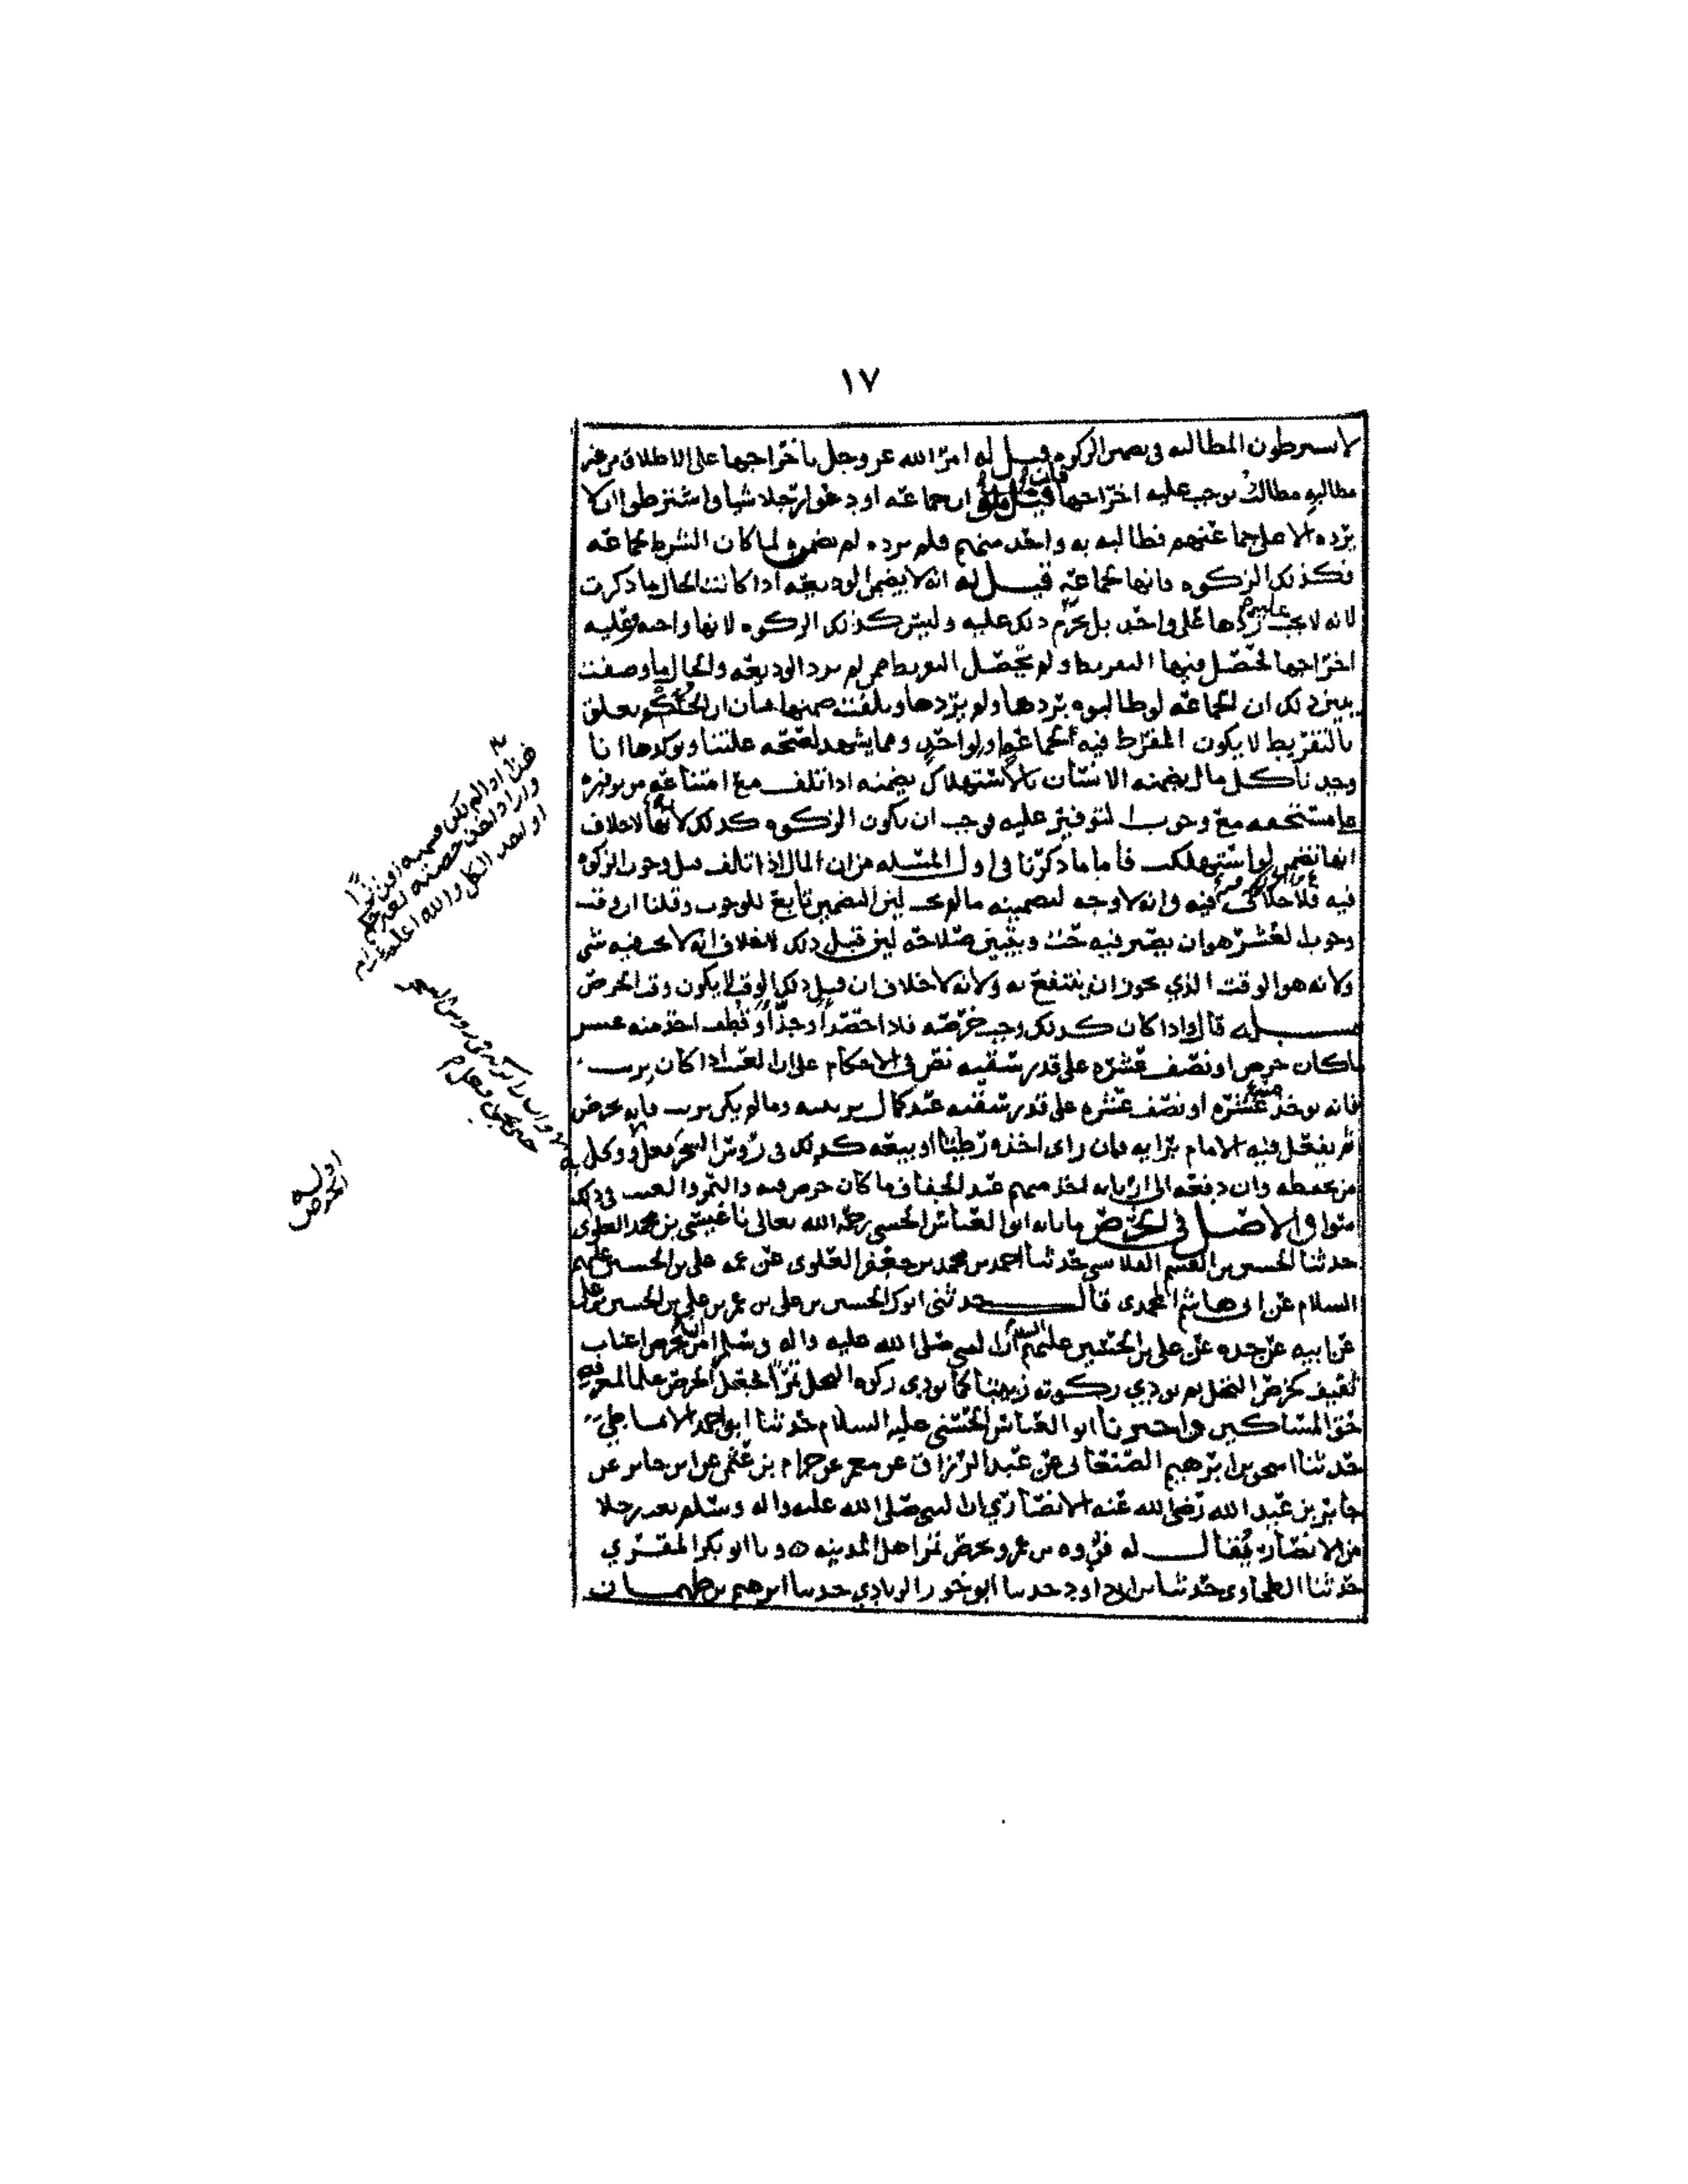 ١٧
لا يشترطون المطالبة في تضمين الزكوه قيل له امر الله عز وجل باخراجها على الاطلاق من غير
مطالبه مطالب توجب عليه اخراجها فان قيل ان جماعه اودعوا رجلا شيا واشترطوا ان لا
يرده الا على جماعتهم فطالبه به واحد منهم فلم يرده لم يضمن لما كان الشرط لجماعه
فكذلك الزكوه فانها لجماعه قيل له انه لا يضمن الوديعه اذا كانت الحال ما ذكرت
لانه لا يجب عليه ردها على واحد بل يحرم ذلك عليه وليس كذلك الزكوه لانها واجب عليه
اخراجها فحصل فيها التفريط ولم يحصل التفريط ممن لم يرد الوديعه والحال ما وصفت
يبين ذلك ان الجماعه لو طالبوه بردها ولم يردها وتلفت ضمنها فبان ان الحكم تعلق
بالتفريط لا يكون المفرط فيه لجماعه او لواحد ومما يشهد لصحه علتنا ويوكدها انا
وجدنا كل مال يضمنه الانسان بالاستهلاك يضمنه اذا تلف مع امتناعه من توفيره
على مستحقه مع وجوب التوفير عليه فوجب ان تكون الزكوه كذلك لانها لا خلاف
انها تضمن لو استهلكت فاما ما ذكرنا في اول المسله من ان المال اذا تلف قبل وجوب الزكوه
فيه فلا خلاف فيه وانه لا وجه لتضمينه ما لم يجب لان التضمين تابع للوجوب وقلنا ان وقت
وجوب العشر هو ان يصير فيه حب ويتبين صلاحه لان قبل ذلك لا خلاف انه لا يجب فيه شي
ولانه هو الوقت الذي يجوز ان ينتفع به ولانه لا خلاف ان قبل ذلك الوقت لا يكون وقت الخرص
مسله قال واذا كان كذلك وجب خرصه فاذا احتصد او جذ او قطف اخذ منه عشر
ما كان خرص او نصف عشره على قدر سقيه نص في الاحكام على ان العنب اذا كان يزبب
فانه يوخذ منه عشره او نصف عشره على قدر سقيه عند كمال يبسه وما لم يكن يزبب فانه يخرص
ثم يفعل فيه الامام برايه فان راى اخذه رطبا او بيعه كذلك في روس الشجر فعل ووكل به
من يحفظه وان دفعه الى اربابه اخذ منهم عند الجفاف ما كان خرص فيه والتمر والعنب في ذلك
سوا والاصل في الخرص ما نا به ابو العباس الحسني رحمه الله تعالى نا عيسى بن محمد العلوي
حدثنا الحسين بن القسم القلانسي حدثنا احمد بن محمد بن جعفر العلوي عن عمه علي بن الحسين عليهم
السلام عن ابي هاشم المحمدي قال حدثني ابوك الحسين بن علي بن عمر بن علي بن الحسين بن علي
عن ابيه عن جده عن علي بن الحسين عليهم السلام ان النبي صلى الله عليه واله وسلم امر ان تخرص اعناب
ثقيف كخرص النخل ثم تودي زكوته زبيبا كما تودي زكوه النخل تمرا فجعل الخرص علما لمعرفه
حق المساكين واخبرنا ابو العباس الحسني عليه السلام حدثنا ابو احمد الانماطي
حدثنا اسحق بن ابرهيم الصنعاني عن عبد الرزاق عن معمر عن حرام بن عثمن عن ابن جابر عن
جابر بن عبد الله رضي الله عنه الانصاري ان النبي صلى الله عليه واله وسلم بعث رجلا
من الانصار يقال له فروه بن عمرو يخرص تمر اهل المدينه ونا ابو بكر المقري
حدثنا الطحاوي حدثنا ابن ابي داود حدثنا ابو عون الزيادي حدثنا ابرهيم بن طهمان
هذا اذا لم تكن قسمه
او تعد الكل والله اعلم
اوله
الخرص